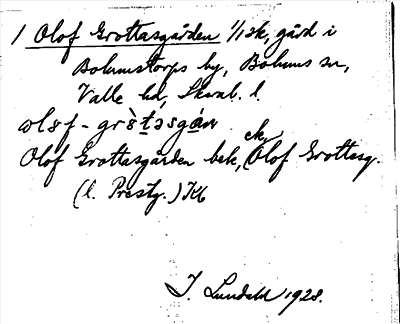 1 Olof Grottasgården 1/1 sk, gård i
Bolumstorps by, Bolums sn,
Valle hd, Skarab. l.
olof-gròtasgán
Olof Grottasgården bek, ek, Olof Grottasg.
(l. Prestg.) Kb
J. Lundahl 1928.